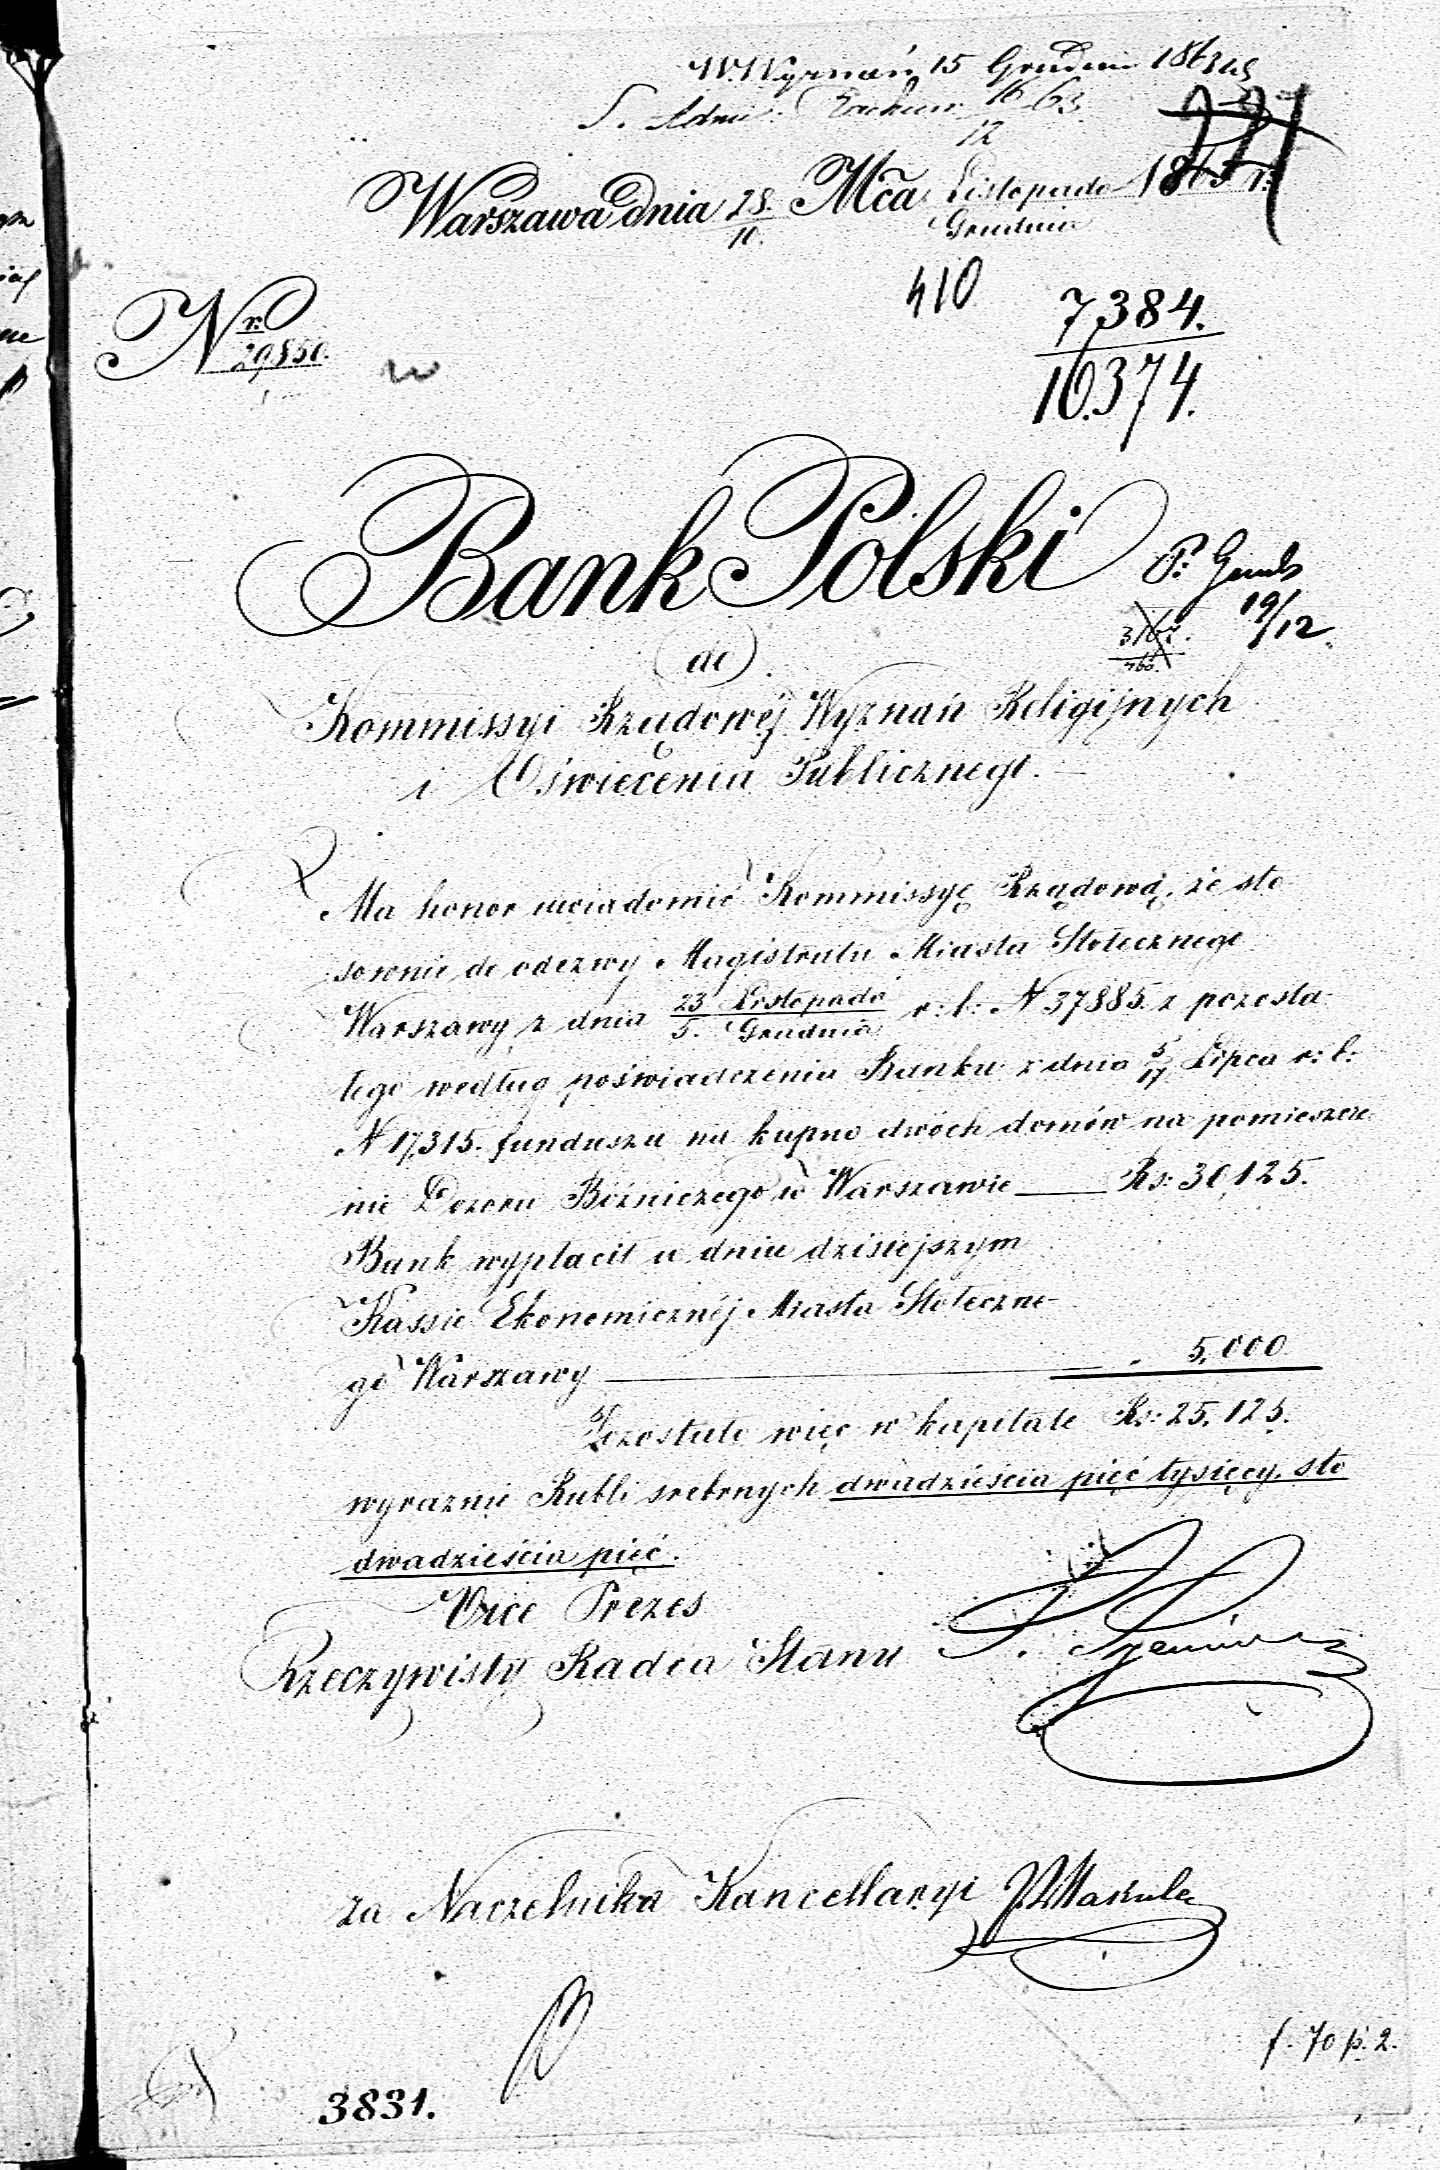 W. Wyznań 15 Grudnia 1863
S. Adm: Rachun. 16/12 63
Warszawa dnia 28/10. Mca Listopada/Grudnia 1863 r:
410
7384.
10.374.
Nr. 29,850.
Bank Polski
P.
19/12.
do
Kommissyi Rządowéj Wyznań Religijnych
i Oświecenia Publicznego.
Ma honor uwiadomić Kommissyę Rządową, że sto
sownie do odezwy Magistratu Miasta Stołecznego
Warszawy z dnia 23 Listopada/5. Grudnia r: b: N 37885. z pozosta
łego według poświadczenia Banku z dnia 5/17 Lipca r: b:
N 17,315. funduszu na kupno dwóch domów na pomieszcze
nie Dozoru Bóżniczego w Warszawie Rs: 30,125.
Bank wypłacił w dniu dzisiejszym
Kassie Ekonomicznéj Miasta Stołeczne
go Warszawy " 5,000
Pozostało więc w kapitale Rs: 25,125.
wyraźnie Rubli srebrnych dwadzieścia pięć tysięcy, sto
dwadzieścia pięć.
Vice Prezes
Rzeczywisty Radca Stanu
za Naczelnika Kancellaryi
f. 70 p. 2.
3831.